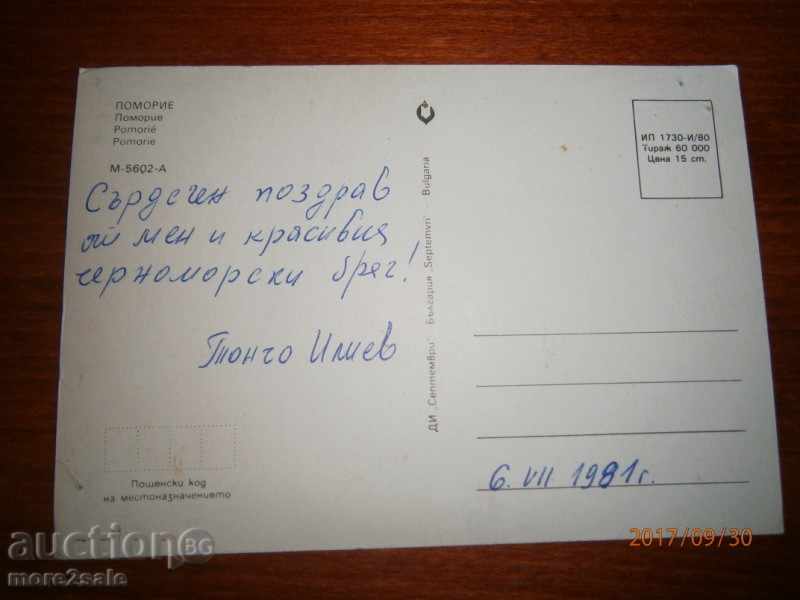 ПОМОРИЕ
Поморие
Pomorié
Pomorie
М-5602-А
Сърдечен поздрав
от мен и красивия
черноморски бряг!
Тончо Илиев
Пощенски код
на местоназначението
ДИ „Септември" България „Septemvri" Bulgaria
ИП 1730-И/80
Тираж 60 000
Цена 15 ст.
6. VII 1981 г.
2017/09/30
auction BG
more2sale